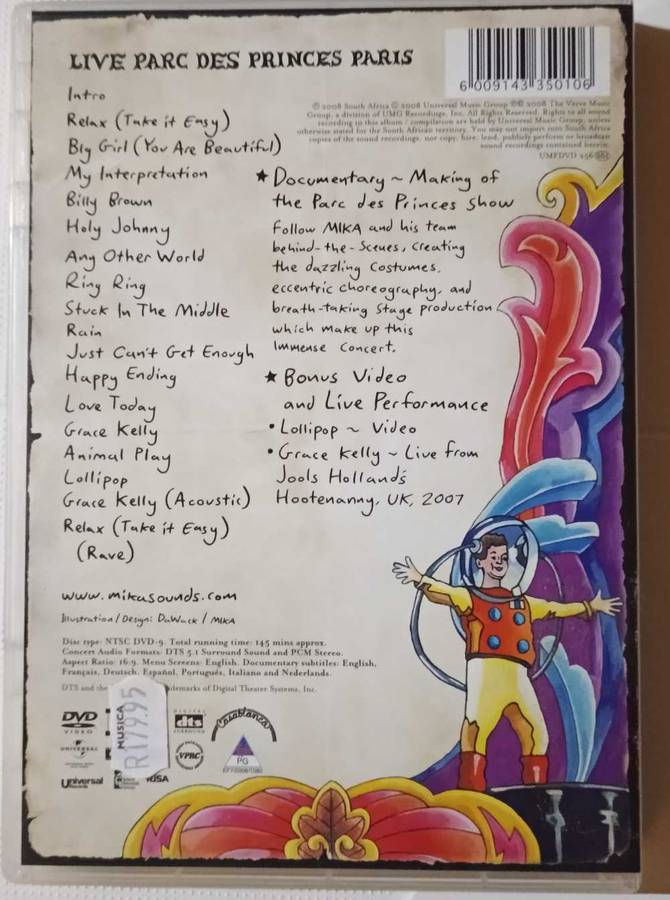 LIVE PARC DES PRINCES PARIS
6 009143 350106
℗ 2008 South Africa © 2008 Universal Music Group ℗© 2008 The Verve Music
Group, a division of UMG Recordings, Inc. All Rights Reserved. Rights to all sound
recording in this album / compilation are held by Universal Music Group, unless
otherwise stated for the South African territory. You may not import into South Africa
copies of the sound recordings, nor copy, hire, lend, publicly perform or broadcast
sound recordings contained herein.
UMFDVD 256
Intro
Relax (Take it Easy)
Big Girl (You Are Beautiful)
My Interpretation
Billy Brown
Holy Johnny
Any Other World
Ring Ring
Stuck In The Middle
Rain
Just Can't Get Enough
Happy Ending
Love Today
Grace Kelly
Animal Play
Lollipop
Grace Kelly (Acoustic)
Relax (Take it Easy)
(Rave)
★ Documentary ~ Making of
the Parc des Princes show
Follow MIKA and his team
behind-the-scenes, creating
the dazzling costumes,
eccentric choreography, and
breath-taking stage production
which make up this
immense concert.
★ Bonus Video
and Live Performance
• Lollipop ~ Video
• Grace Kelly ~ Live from
Jools Holland's
Hootenanny, UK, 2007
www.mikasounds.com
Illustration/Design: DaWack / MIKA
Disc type: NTSC DVD-9. Total running time: 145 mins approx.
Concert Audio Formats: DTS 5.1 Surround Sound and PCM Stereo.
Aspect Ratio: 16:9. Menu Screens: English. Documentary subtitles: English,
Français, Deutsch, Español, Português, Italiano and Nederlands.
DTS and the
demarks of Digital Theater Systems, Inc.
DVD
VIDEO
MUSICA
R179.95
DIGITAL
dts
SURROUND
Casablanca
UNIVERSAL
VPRC
PG
Universal
Records
RiSA